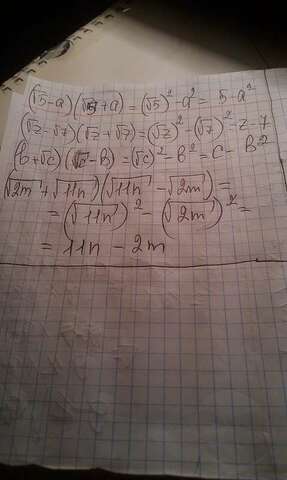 (√5-a)(√5+a)=(√5)²-a²=5-a²
(√z-√7)(√z+√7)=(√z)²-(√7)²=z-7
(b+√c)(√c-b)=(√c)²-b²=c-b²
(√2m+√11n)(√11n-√2m)=
=(√11n)²-(√2m)²=
=11n-2m